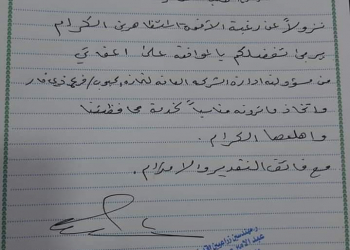 نزولاً عند رغبة الاخوة المتظاهرين الكرام
يرجى تفضلكم بالموافقة على اعفائي
من مسؤولية ادارة الشركة العامة لتجارة الحبوب/فرع ذي قار
واتخاذ ماترونه مناسباً لخدمة محافظتنا
واهلها الكرام.
مع فائق التقدير والاحترام.